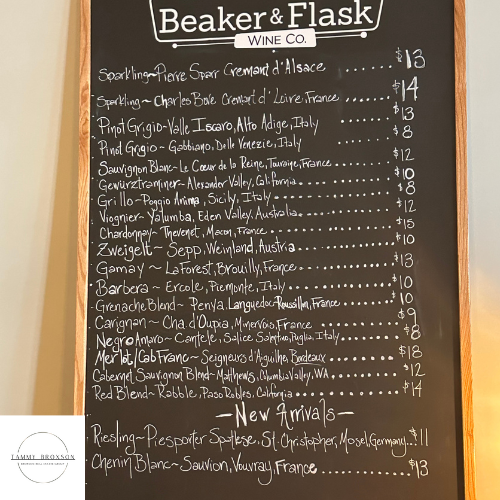 Beaker & Flask
WINE CO.
Sparkling~Pierre Sparr Cremant d'Alsace ...... $13
Sparkling~Charles Bove Cremant d' Loire, France ...... $14
Pinot Grigio-Valle Isarco, Alto Adige, Italy ...... $13
Pinot Grigio ~ Gabbiano, Delle Venezie, Italy ...... $8
Sauvignon Blanc~Le Coeur de la Reine, Touraine, France .... $12
Gewürztraminer~ Alexander Valley, California ...... $10
Grillo~Poggio Anima, Sicily, Italy ...... $8
Viognier~Yalumba, Eden Valley, Australia ...... $12
Chardonnay~ Thevenet, Macon, France ...... $15
Zweigelt~ Sepp, Weinland, Austria ...... $10
Gamay ~ LaForest, Brouilly, France ...... $13
Barbera ~ Ercole, Piemonte, Italy ...... $10
Grenache Blend~ Penya, Languedoc-Roussillon, France ...... $10
Carignan~ Cha. d'Oupia, Minervois, France ...... $9
NegroAmaro~ Cantele, Salice Salentino, Puglia, Italy ...... $8
Merlot/Cab Franc~ Seigneurs d'Aiguilhe, Bordeaux ...... $18
Cabernet Sauvignon Blend~Matthews, Columbia Valley, WA ...... $12
Red Blend~Rabble, Paso Robles, California ...... $14
—New Arrivals—
Riesling~Piesporter Spatlese, St. Christopher, Mosel, Germany... $11
Chenin Blanc~Sauvion, Vouvray, France ...... $13
TAMMY BROXSON